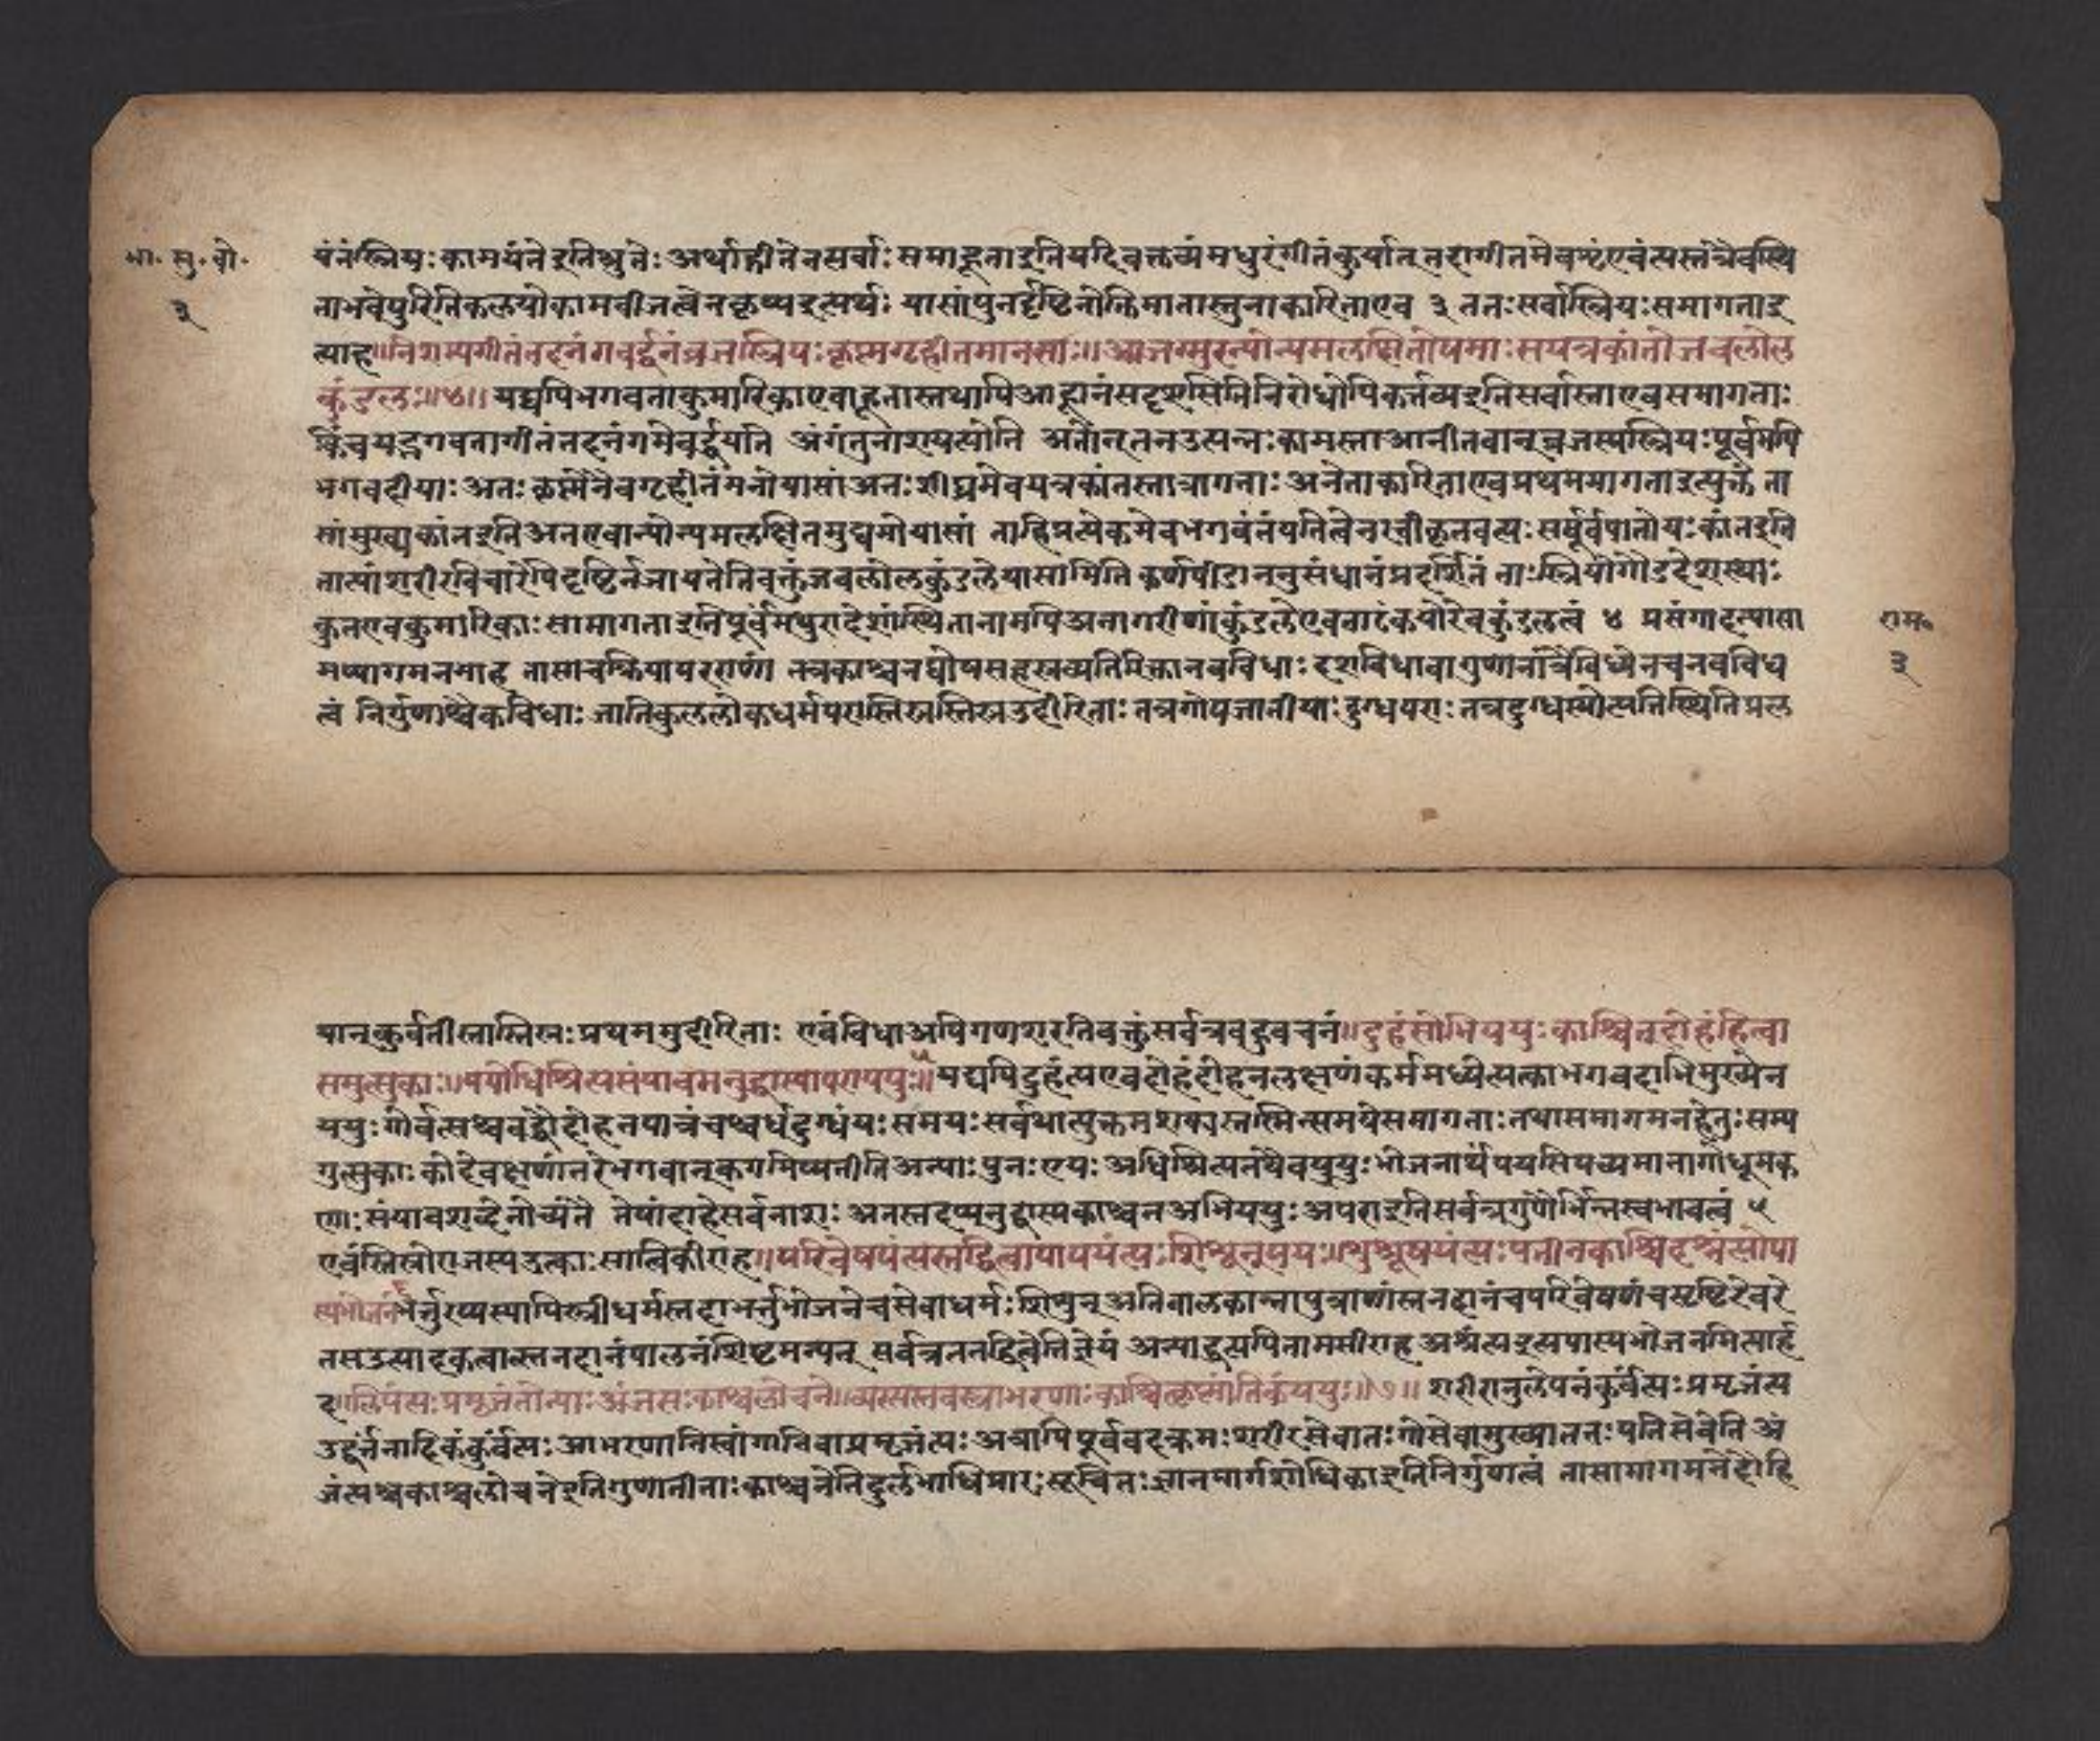 भा. सु. बो.
३
यंतंस्त्रियः कामयंतेइतिश्रुतेः अर्थाद्गीतेनसर्वाः समाहूताइतियदिवक्तव्यंमधुरंगीतंकुर्यात् तदागीतमेवशृण्वंत्यस्तत्रैवस्थि
ताभवेयुरितिकलयोकामबीजत्वेनकृष्यइत्यर्थः यासांपुनर्दृष्टिर्नोक्तिमातास्तुनाकारिताएव ३ ततः सर्वास्त्रियः समागताइ
त्याह॥निशम्यगीतंतदनंगवर्द्धनंव्रजस्त्रियः कृष्णगृहीतमानसाः॥आजग्मुरन्योन्यमलक्षितोद्यमाः सयत्रकांतोजवलोल
कुंडलाः॥४॥ यद्यपिभगवताकुमारिकाएवाहूतास्तथापिआह्वानंसदृशमितिनिरोधोपिकर्त्तव्यइतिसर्वास्ताएवसमागताः
किंचयद्भगवतागीतंतदनंगमेवर्द्धयति अंगंतुनाशयत्येति अतोनूतनउत्पन्नः कामस्ताआनीतवान् व्रजस्यस्त्रियः पूर्वमपि
भगवदीयाः अतः कृष्णेनैवगृहीतंमनोयासां अतः शीघ्रमेवयत्रकांतस्तत्रागताः अनेनाकारिताएवप्रथममागताइत्युक्तं ता
सांमुख्यकांतइतिअतएवान्योन्यमलक्षितमुद्यमोयासां ताहिप्रत्येकमेवभगवंतंपतित्वेनस्वीकृतवत्यः सपूर्वपातोयः कांतइति
तात्पां शरीरविचारेपिदृष्टिर्नजायतेतिवक्तुंजवलोलकुंडलेयासामिति कर्णपीडाननुसंधानंप्रदर्शितं ताः स्त्रियोगौडदेशस्थाः
कुतएवकुमारिकाः सामागताइतिपूर्वंमथुरादेशस्थितानामपिअनागरीणांकुंडलेएवताटंकयोरेवकुंडलत्वं ४ प्रसंगादन्यासा
मप्यागमनमाह तासांचक्रियापरराणां तत्रकाश्चनघोषसहस्रव्यतिरिक्तानवविधाः दशविधावागुणानांत्रैविध्येनचनवविध
त्वं निर्गुणाश्चैकविधाः जातिकुललोकधर्मपरास्तिस्रस्तिस्रउदीरिताः तत्रगोपजातीयाः दुग्धपराः तत्रदुग्धस्योत्पत्तिस्थितिप्रल
राम॰
३
यान्कुर्वतीस्तास्तिस्रः प्रथममुदीरिताः एवंविधाअपिगणशरतिवक्तुंसर्वत्रबहुवचनं॥दुहंत्सोभिययुः काश्चित्दोहंहित्वा
समुत्सुकाः॥पयोधिश्रित्यसंयावमनुद्वास्यापराययुः॥५ यद्यपिदुहंत्यएवदोहंदोहनलक्षणंकर्ममध्येत्यक्त्वाभगवदाभिमुख्येन
ययुः गोर्वत्सश्चबद्धौदोहनपात्रंचश्चर्धदुग्धंयः समयः सर्वथात्युक्तमशक्यस्तस्मिन्समयेसमागताः तथासमागमनहेतुः सम्य
गुत्सुकाः कीदेवक्षणांतरेभगवान्क्वगमिष्यतीतिअन्याः पुनः एयः अधिश्रित्यतथैवययुः भोजनार्थंपयसिपच्यमानागोधूमक
णाः संयावशब्देनोच्यंते तेषांदाहेसर्वनाशः अतस्तदप्यनुद्वास्यकाश्चनअभिययुः अपराइतिसर्वत्रगुणैर्भिन्नस्वभावत्वं ५
एवंतिस्रोराजस्यउत्काः सात्विकीराह॥परिवेषयंत्यस्तद्धित्वापाययंत्यः शिशून्पयः॥शुश्रूषयंत्यः पतीन्काश्चिदश्नंत्योपा
स्यभोजनं॥६ भर्त्तुरप्यस्यापिस्त्रीधर्मस्तदाभर्त्तुर्भोजनेचसेवाधर्मः शिशुन् अतिबालकान्नापुत्राणांस्तनदानंचपरिवेषणंचसृष्टिरेवरे
तसउत्पादकत्वात्स्तनदानंपालनंशिष्टमन्यत् सर्वत्रतत्तद्धित्वेतिज्ञेयं अन्याद्दूत्यपितामसीराह अश्नंत्यइत्यपास्यभोजनमित्यार्द्द
ह॥लिंपंत्यः प्रमृजंतोन्याः अंजत्यः काश्चलोचने॥व्यत्यस्तवस्त्राभरणाः काश्चित्कृष्णांतिकंययुः॥७॥ शरीरानुलेपनंकुर्वंत्यः प्रमृजंत्य
उद्वर्त्तनादिकंकुर्वत्यः आभरणानिस्वांगानिवाप्रमृजंत्यः अत्रापिपूर्ववदक्रमः शरीरसेवातः गोसेवामुख्याततः पतिसेवेति अं
जंत्यश्चकाश्चलोचनेइतिगुणातीताः काश्चनेतिदुर्लभाधिकारः सूचितः ज्ञानमार्गशोधिकाइतिनिर्गुणत्वं तासामागमनेदौहि